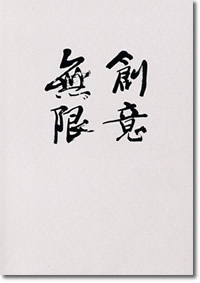 創意
無限